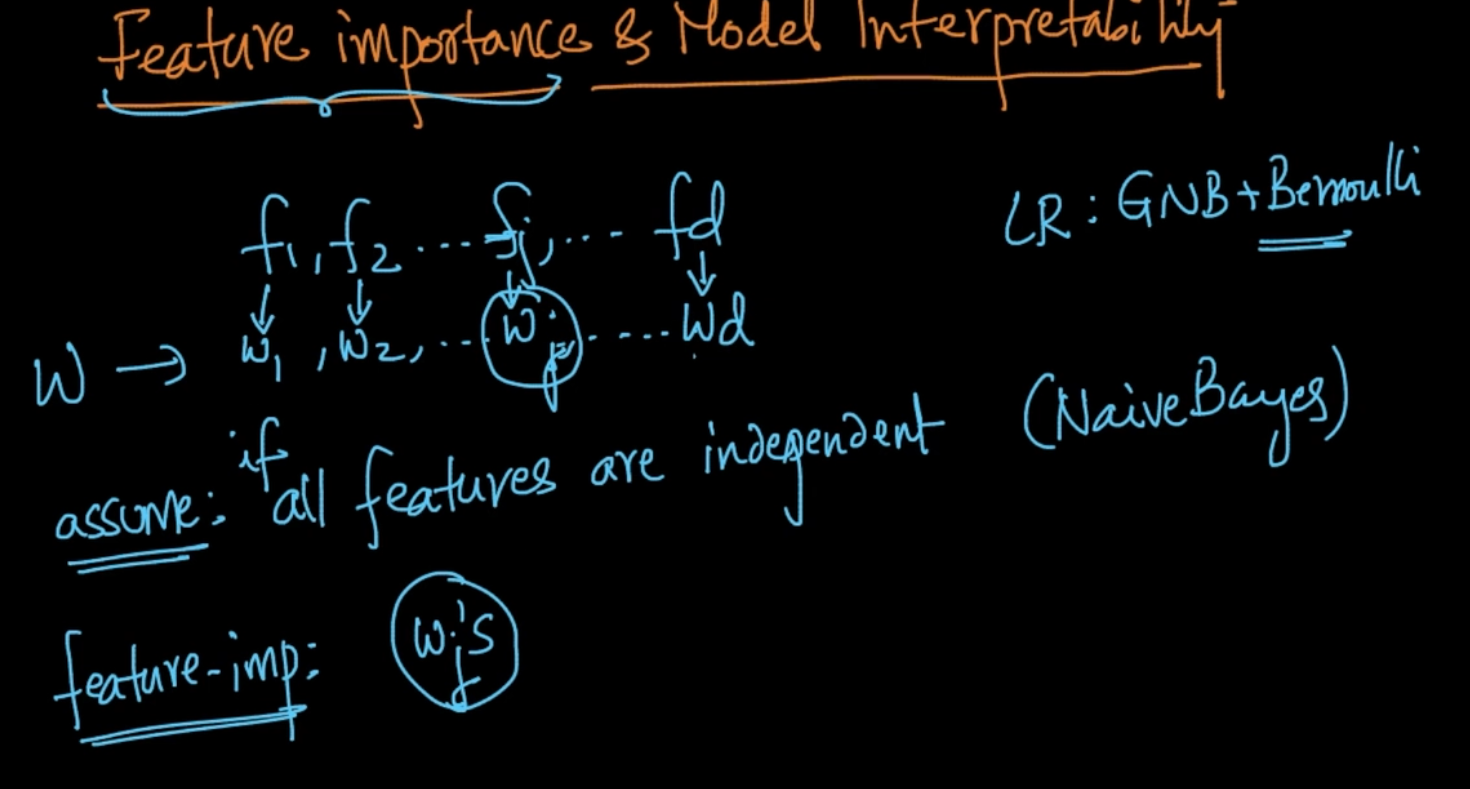 Feature importance & Model Interpretability
f1, f2 .... fj, ... fd
LR: GNB + Bernoulli
W → w1, w2, ... wj .... wd
assume: if all features are independent (Naive Bayes)
feature-imp: wj's